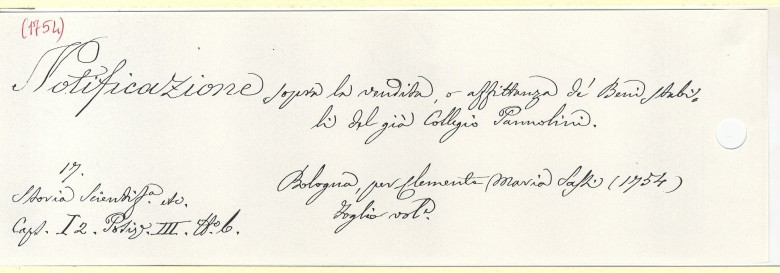 (1754)
Notificazione sopra la vendita, o affittanza de' Beni stabi-
li del già Collegio Pannolini.
17.
Storia Scientif.a etc.
Caps. I 2. Posiz. III. N.o 6.
Bologna, per Clemente Maria Sassi (1754)
Foglio vol.e